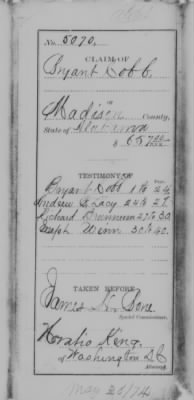 No. 5070.
CLAIM OF
Bryant Dobb.
in
Madison County,
State of Alabama
$ 657
TESTIMONY OF
Page.
Bryant Dobb 1 to 24
Andrew D. Lacy 24 to 27
Richard 27 to 30
Joseph Winn 30 to 40.
TAKEN BEFORE
James
Special Commissioner.
Horatio King.
of Washington D.C.
Attorney.
May 26/74